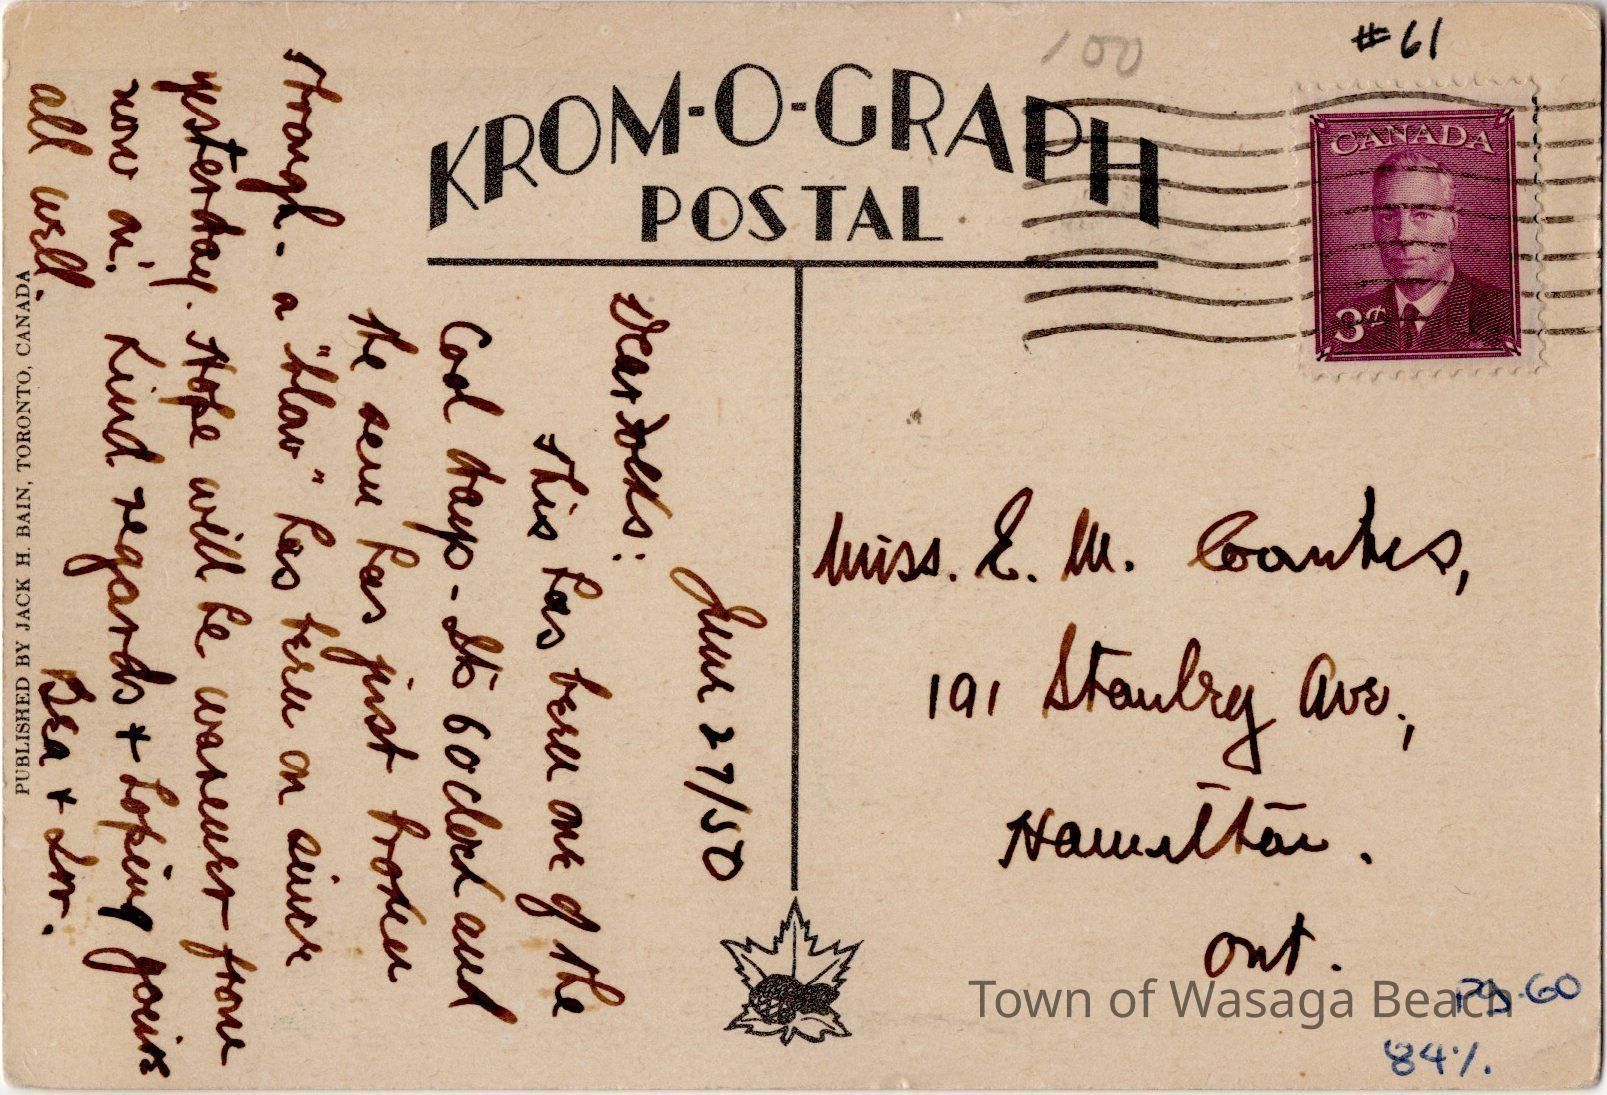 KROM-O-GRAPH
POSTAL
100
#61
CANADA
3¢
June 27/50
Dear Folks:
This has been one of the
Cool days - It's 6 oclock and
the sun has just broken
through - a "blow" has been on since
yesterday. Hope will be warmer from
now on. Kind regards + hoping you're
all well.
Bea + Lor.
Miss. E. M. Coombes,
191 Stanley Ave.,
Hamilton.
Ont.
PUBLISHED BY JACK H. BAIN, TORONTO, CANADA
Town of Wasaga Beach
60
84%.